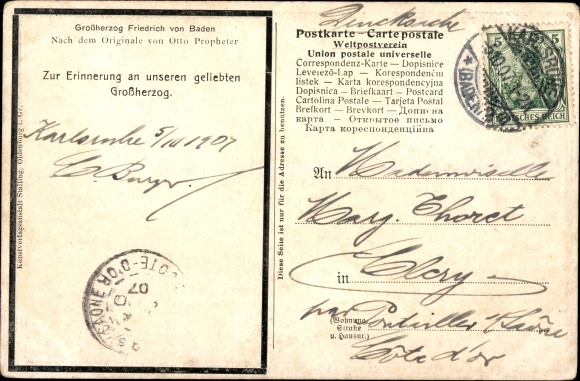 Großherzog Friedrich von Baden
Nach dem Originale von Otto Propheter
Zur Erinnerung an unseren geliebten
Großherzog.
Karlsruhe 5/10 1907
Kunstverlagsanstalt Stalling, Oldenburg i. Gr.
CÔTE-D'OR
07
Diese Seite ist nur für die Adresse zu benutzen.
Drucksache
Postkarte - Carte postale
Weltpostverein
Union postale universelle
Correspondenz-Karte — Dopisnice
Levelező-Lap — Korespondenční
lístek — Karta korespondencyjna
Dopisnica — Briefkaart — Postcard
Cartolina Postale — Tarjeta Postal
Brefkort — Brevkort — Дописна
карта — Открытое письмо
Карта кореспонденційна
5 5
DEUTSCHES REICH
KARLSRUHE
(BADEN)
An Mademoiselle
Marg. Thoret
in Clery
par Pontailler s/Saône
(Wohnung
Straße
u. Hausnr.)
Côte d'or